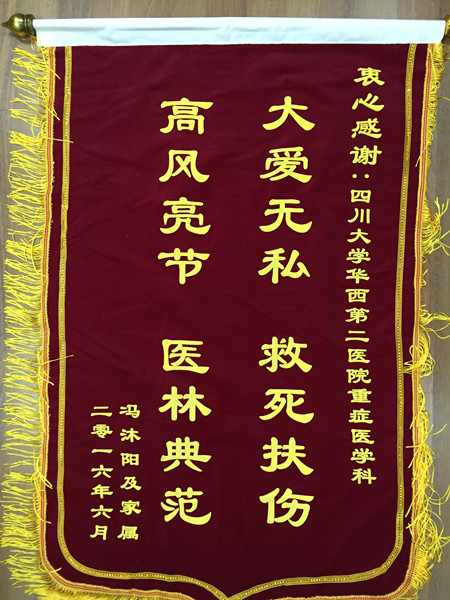 衷心感谢：四川大学华西第二医院重症医学科
大爱无私 救死扶伤
高风亮节 医林典范
冯沐阳及家属
二零一六年六月